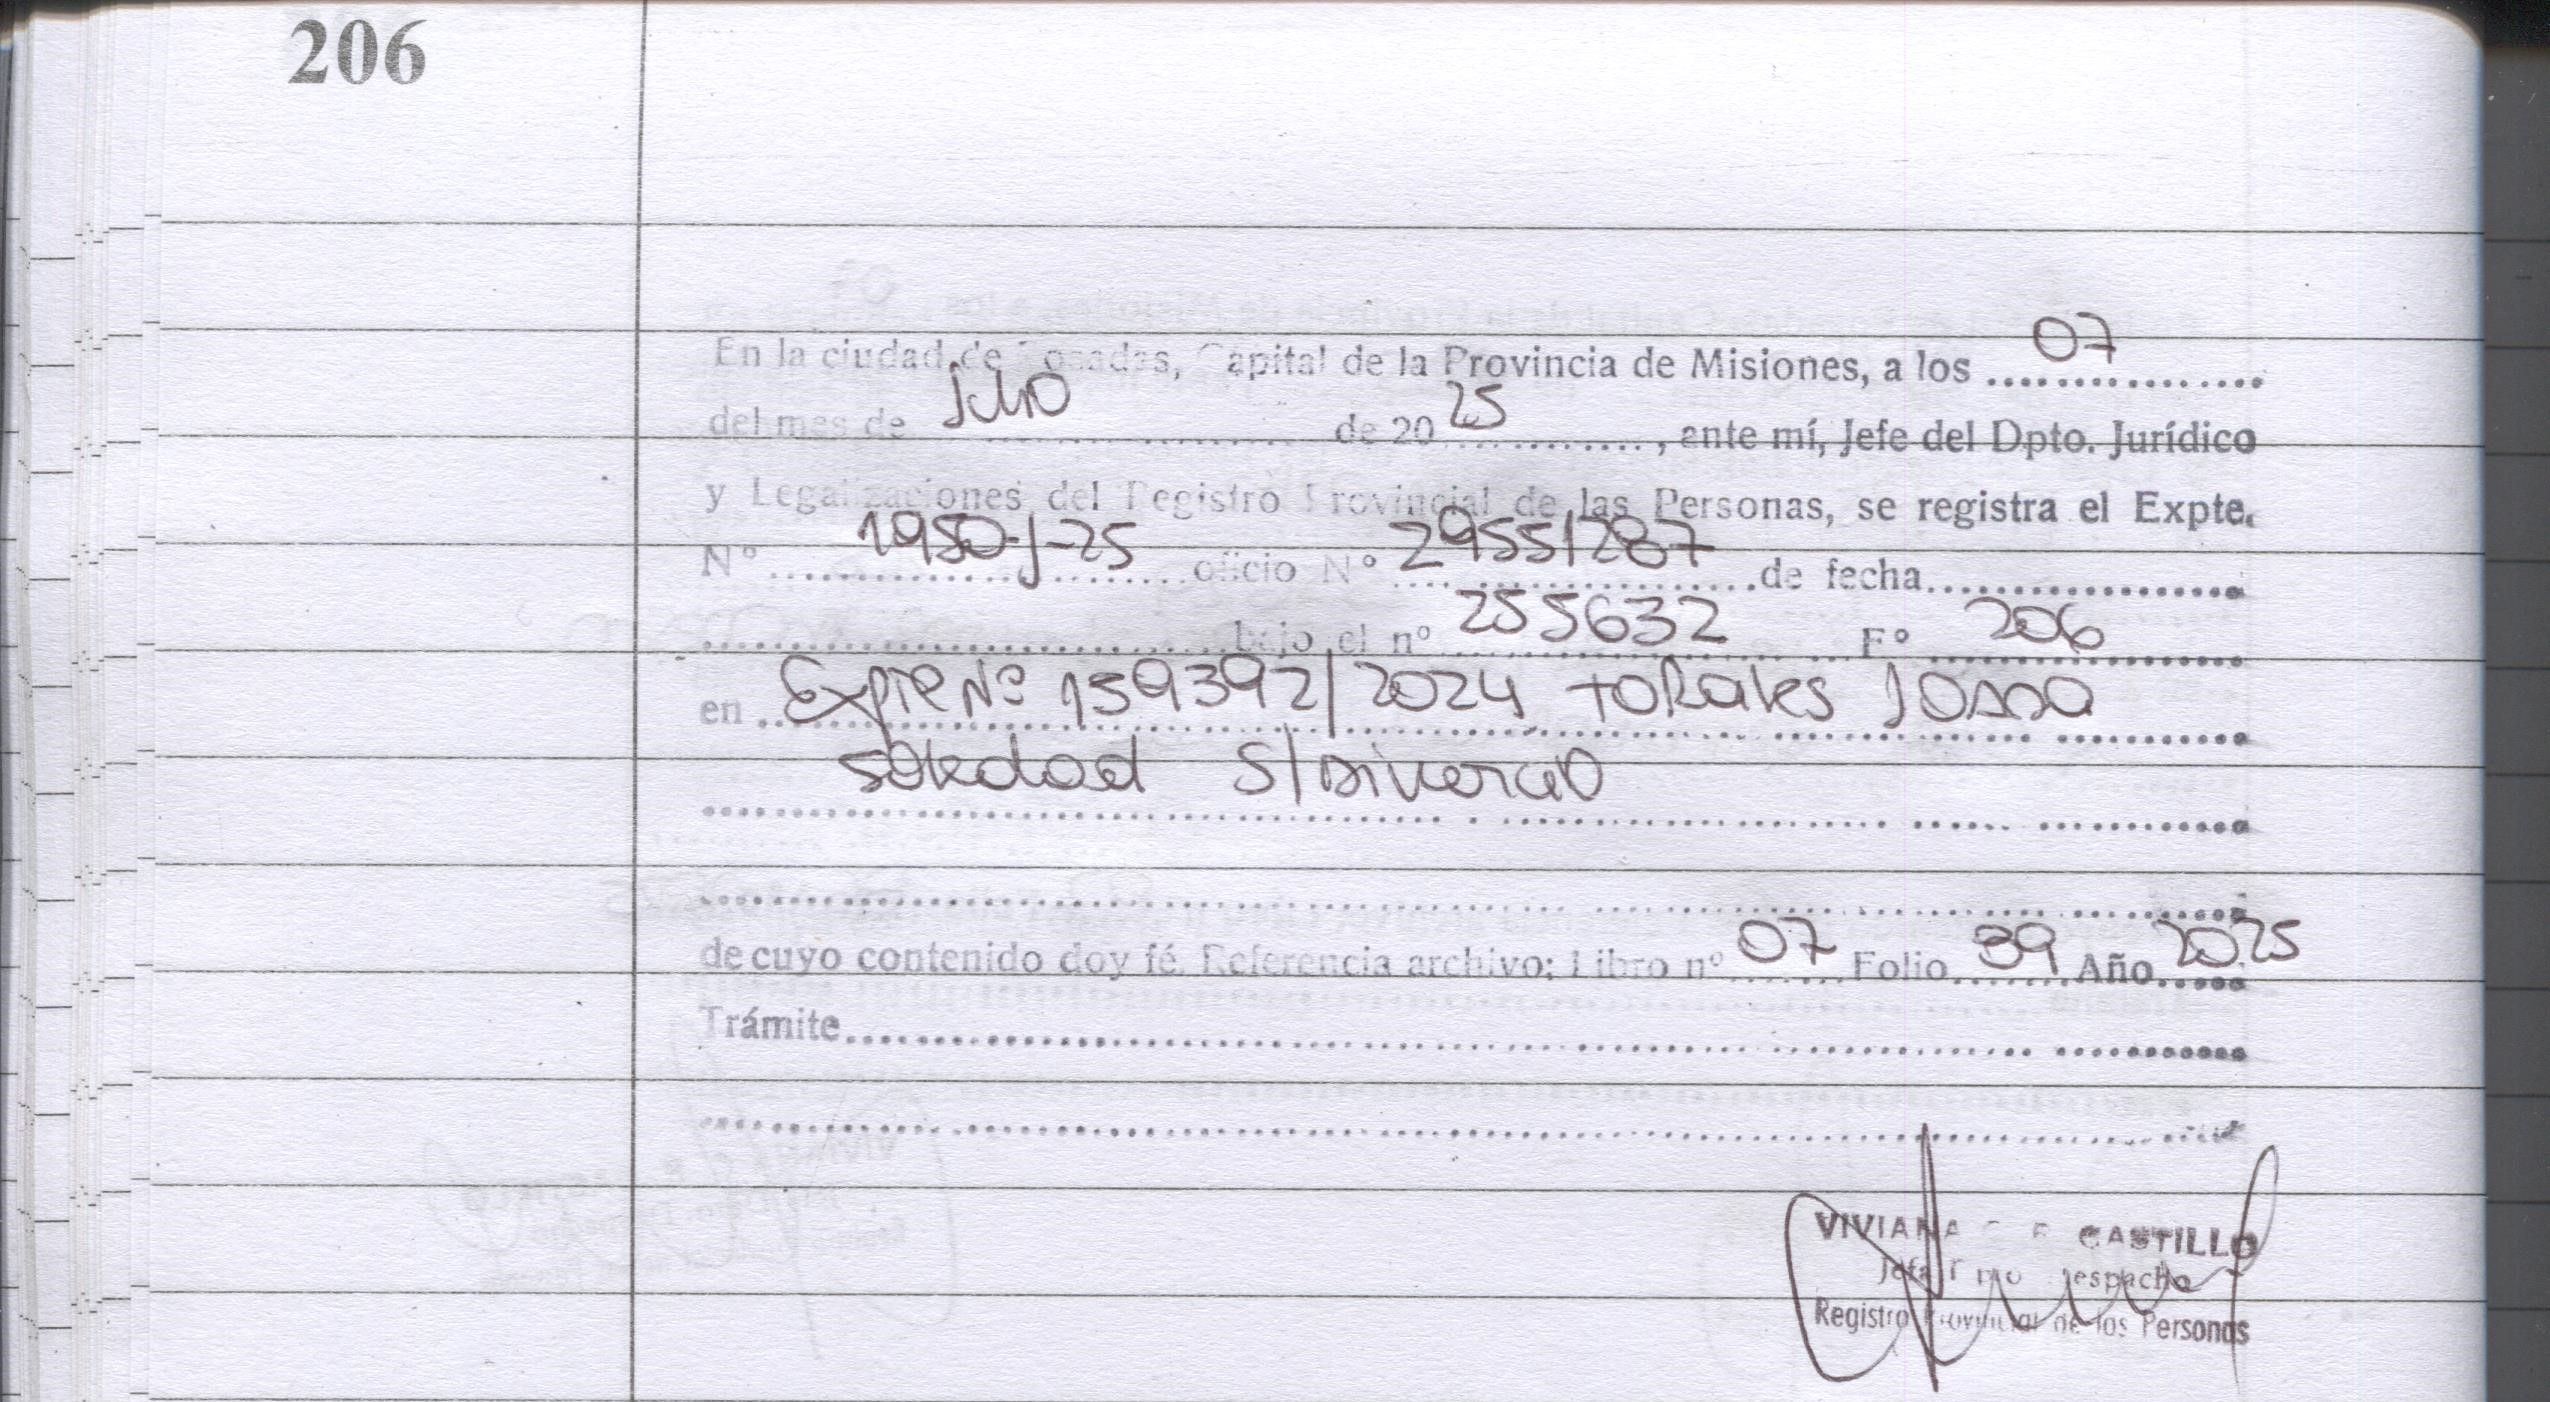 206
En la ciudad de Posadas, Capital de la Provincia de Misiones, a los 07
del mes de julio de 2025, ante mí, Jefe del Dpto. Jurídico
y Legalizaciones del Registro Provincial de las Personas, se registra el Expte.
Nº 1950-J-25 oficio Nº 29551287 de fecha
bajo el nº 255632 Fº 206
en Expte Nº 159392/2024 Torales
Soledad S/Divorcio
de cuyo contenido doy fé. Referencia archivo: Libro nº 07 Folio 39 Año 2025
Trámite
VIVIANA CASTILLO
Jefa Dpto Despacho
Registro Provincial de las Personas